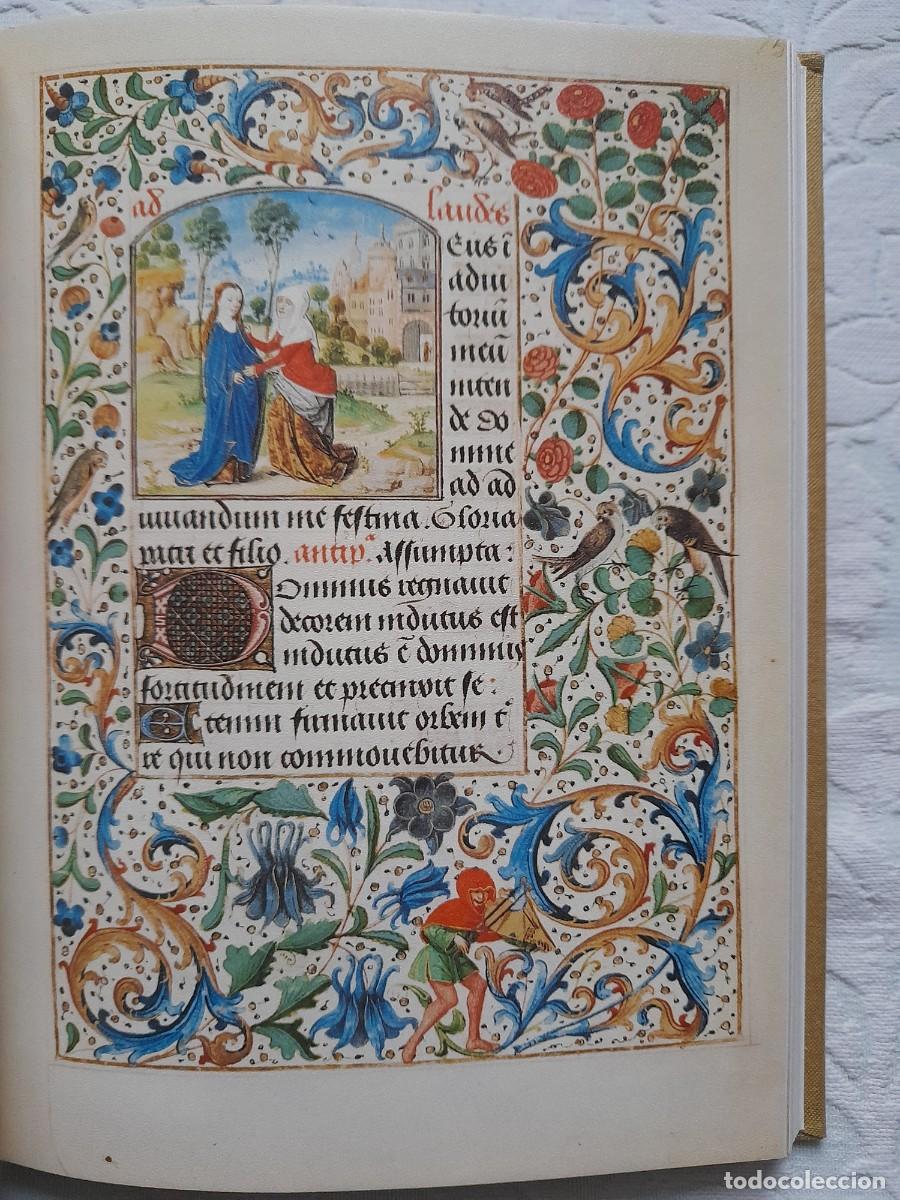 ad laudes
Eus i
adiu
toriū
meū
inten
de do
mine
ad ad
iuuandum me festina. Gloria
patri et filio. antipᵃ. Assumpta:
Dominus regnauit
decorem indutus est
indutus ē dominus
fortitudinem et precinxit se:
Etenim firmauit orbem t̄
re qui non commouebitur
todocoleccion